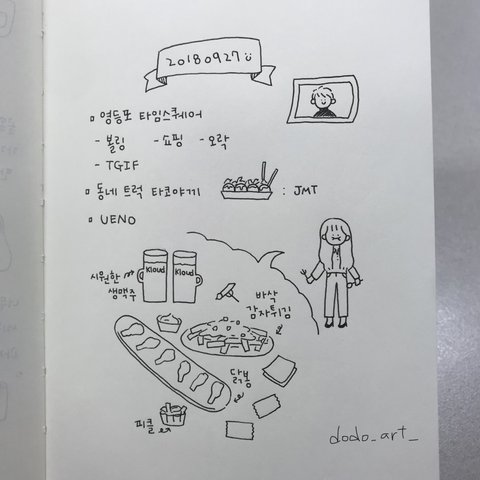 20180927
영등포 타임스퀘어
- 볼링 - 쇼핑 - 오락
- TGIF
동네 트럭 타코야끼 : JMT
UENO
시원한
생맥주
Kloud Kloud
바삭
감자튀김
닭봉
피클
dodo_art_